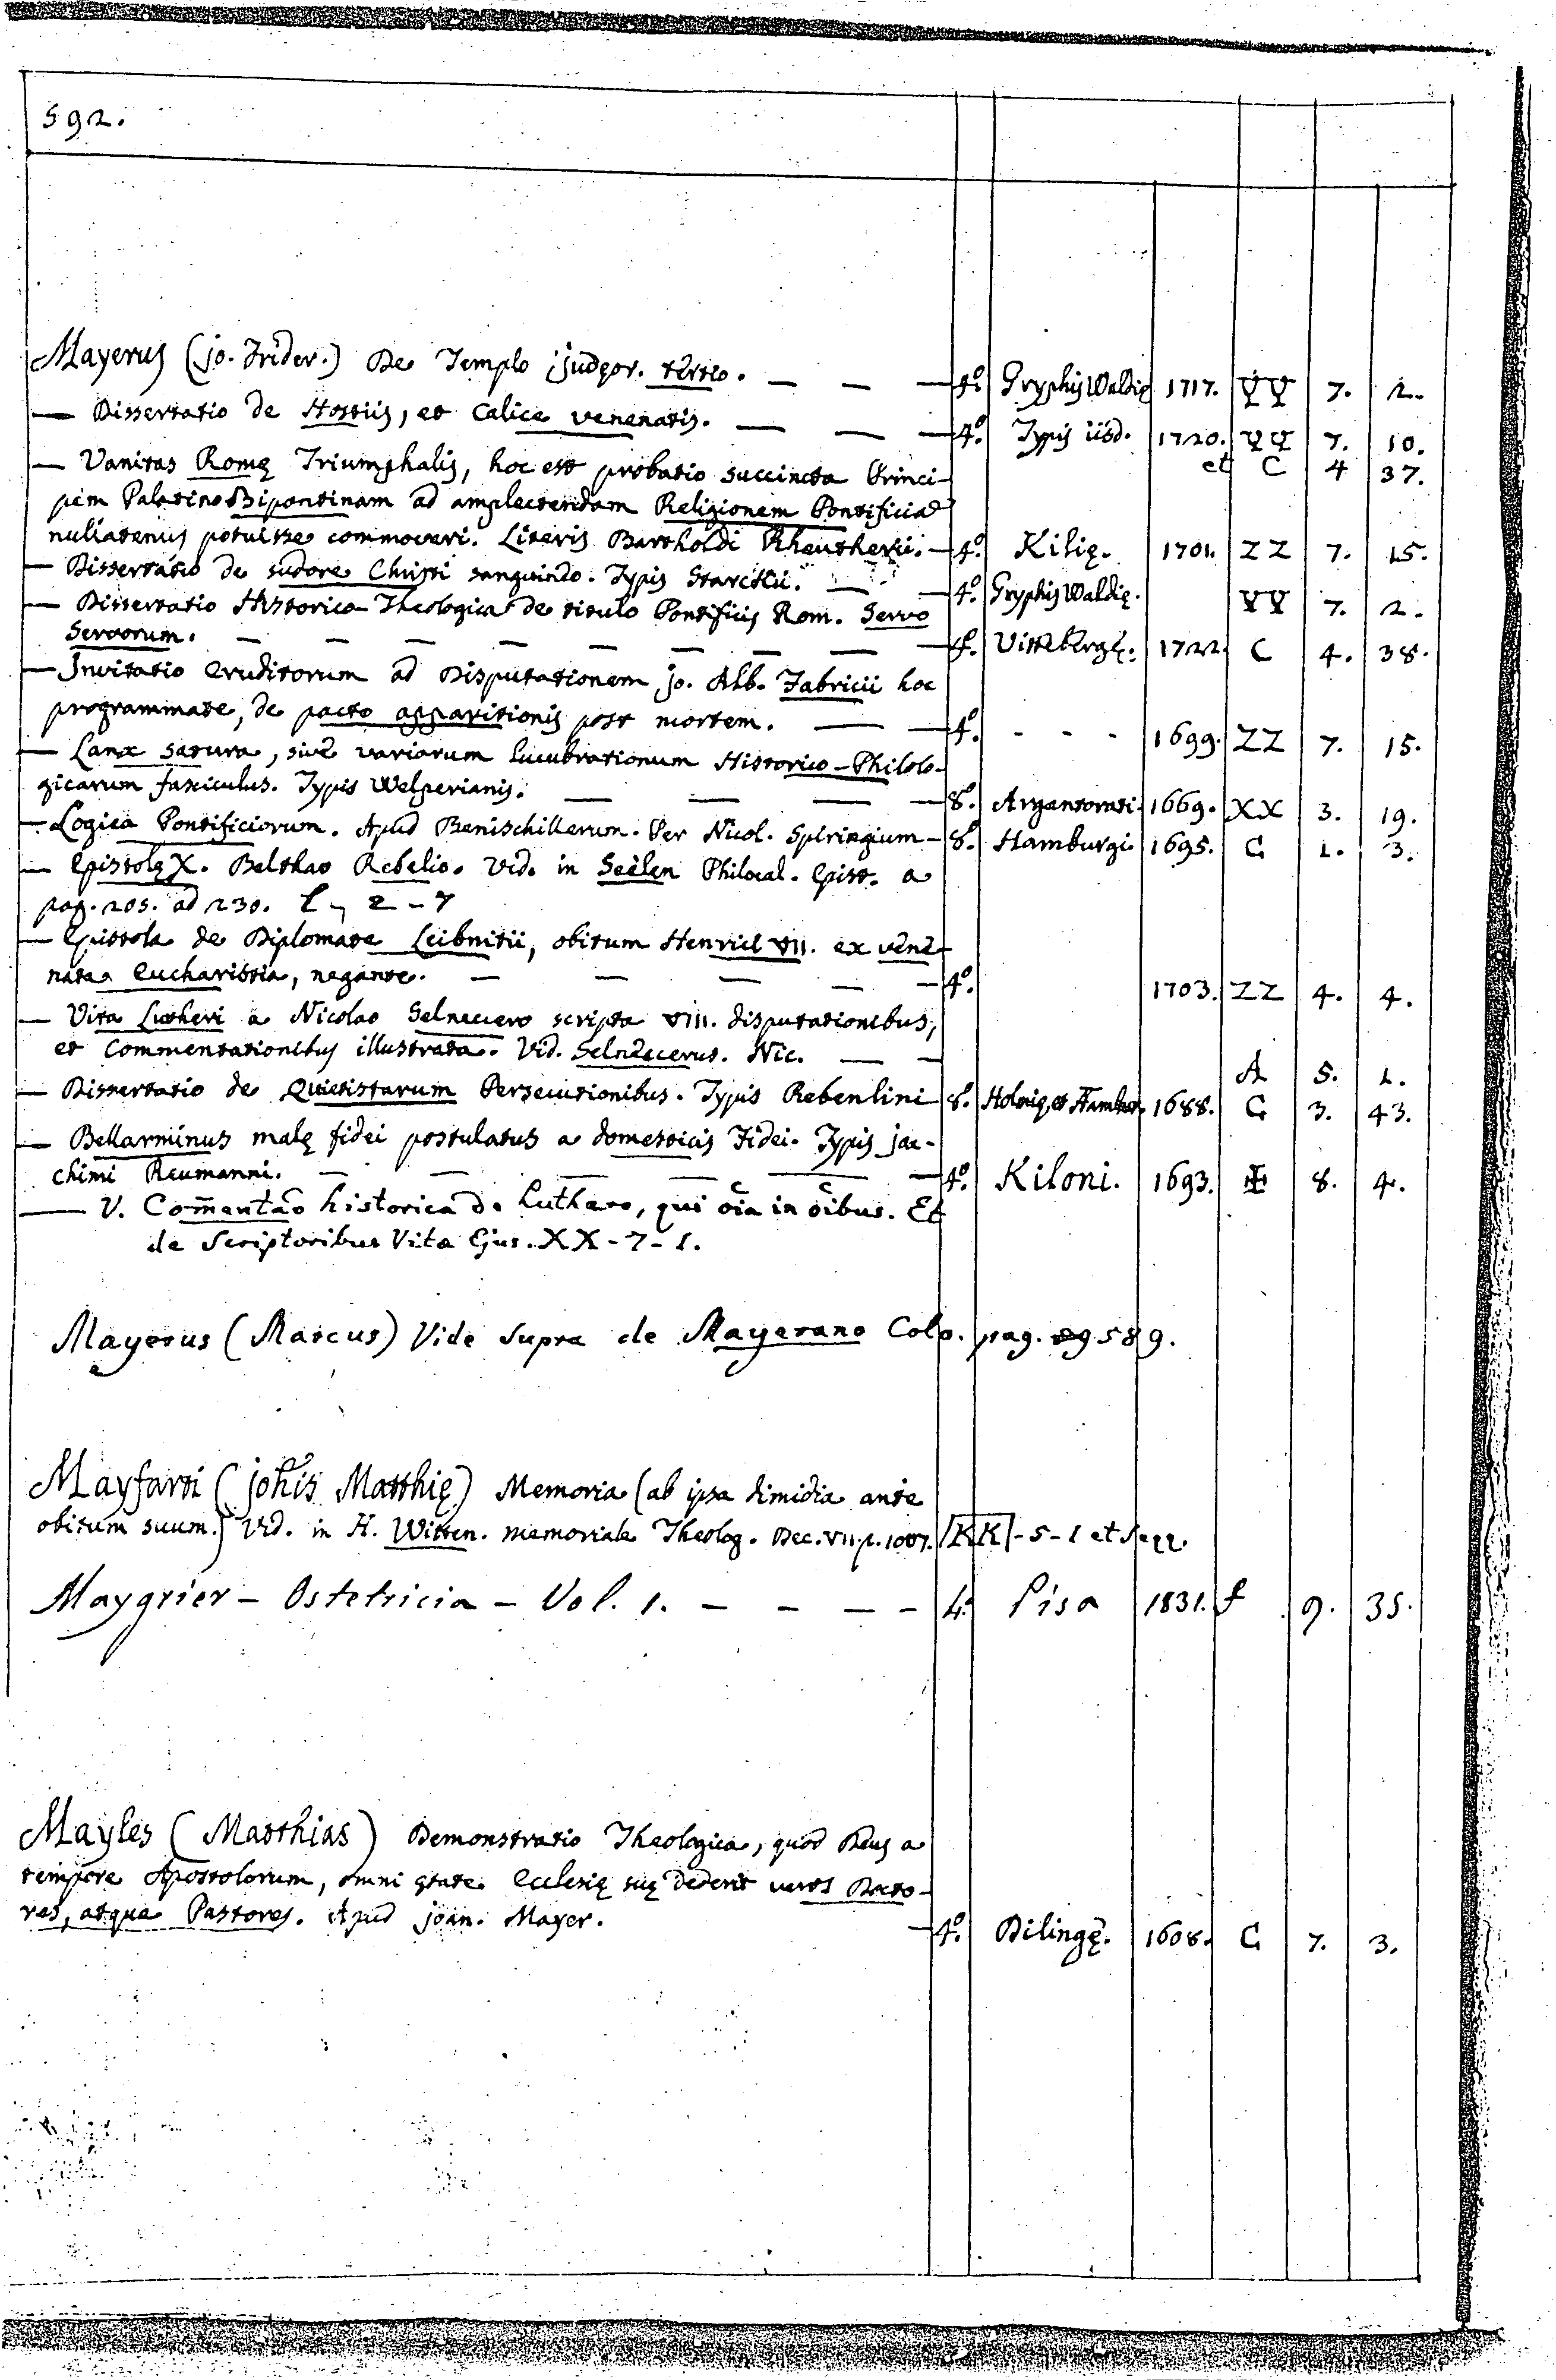 592.
Mayerus (jo. Frider.) De Templo judęor. tertio. — — — 4.º Gryphis Waldię 1717. YY 7. 2.
— Dissertatio de Hostiis, et Calice venenatis. — — — 4.º Typis iisd. 1720. YY 7. 10.
et C 4 37.
— Vanitas Romę Triumphalis, hoc est probatio succincta Princi-
pem Palatino Bipontinam ad amplectendam Religionem Pontificia
nullatenus potuisse commoveri. Literis Bartholdi Rheutheri. — 4.º Kilię. 1701. ZZ 7. 15.
— Dissertatio de sudore Christi sanguineo. Typis Starckii. — — 4.º Gryphis Waldię. YY 7. 2.
— Dissertatio Historico-Theologica de titulo Pontificis Rom. Servo
Servorum. — — — — — — — 4.º Vittebergę. 1722. C 4. 38.
— Invitatio eruditorum ad Disputationem jo. Alb. Fabricii hoc
programmate, de pacto apparitionis post mortem. — — 4.º - - - 1699. ZZ 7. 15.
— Lanx satura, sive variarum lucubrationum Historico-Philolo-
gicarum fasciculus. Typis Welperianis. — — — — 8.º Argentorati. 1669. XX 3. 19.
— Logica Pontificiorum. Apud Benischillerum. Per Nicol. Spiringium — 8.º Hamburgi. 1695. G 1. 3.
— Epistolę X. Belthao Rebelio. Vid. in Seelen Philocal. Epist. a
pag. 205. ad 230. L - 2 - 7
— Epistola de Diplomate Leibnitii, obitum Henrici VII. ex vene-
nata Eucharistia, negante. — — — — — 4.º 1703. ZZ 4. 4.
— Vita Lutheri a Nicolao Selneccero scripta VIII. disputationibus,
et Commentationibus illustrata. Vid. Selneccerus. Nic. — — A 5. 1.
— Dissertatio de Quietistarum Persecutionibus. Typis Rebenlini 8.º Holmię, et Hambur. 1688. G 3. 43.
— Bellarminus malę fidei postulatus a domesticis Fidei. Typis joa-
chimi Reumanni. — — — — — — 4.º Kiloni. 1693. 8. 4.
— V. Com̄entao historica de Luthero, qui oia in oibus. Et
de Scriptoribus Vitæ Ejus. XX - 7 - 1.
Mayerus (Marcus) Vide Supra de Mayerano Colo. pag. 589.
Mayfarti (johis Matthię) Memoria (ab ipsa dimidia ante
obitum suum.) Vid. in H. Witten. memoriale Theolog. Dec. VII. p. 1007. KK - 5 - 1 et seqq.
Maygrier - Ostetricia - Vol. 1. - - - - 4.º Pisa 1831. f 9. 35.
Mayles (Matthias) Demonstratio Theologica, quod Deus a
tempore Apostolorum, omni ętate Ecclesię suę dederit veros Docto-
res, atque Pastores. Apud joan. Mayer. — 4.º Dilingę. 1608. G 7. 3.